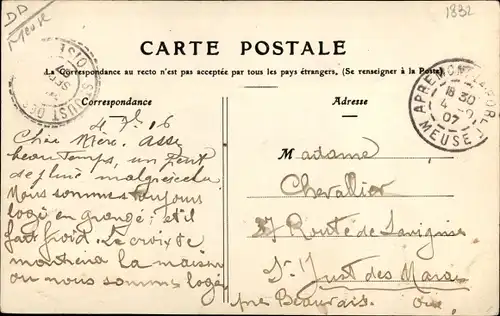 DD
Meuse
1832
CARTE POSTALE
La Correspondance au recto n'est pas acceptée par tous les pays étrangers, (Se renseigner à la Poste)
Correspondance
Adresse
APREMONT-LA-FORET
18 30
4
07
MEUSE
OISE
Chère Mère. Assez
beau Temps, un peut
de pluie malgrès cela
Nous sommes toujours
logé en grange, et il
fait froid. Je crois te
montrera la maison
ou nous sommes logé
Madame
Chevallier
37 Route de Savignies
St Just des Marais
près Beauvais. Oise